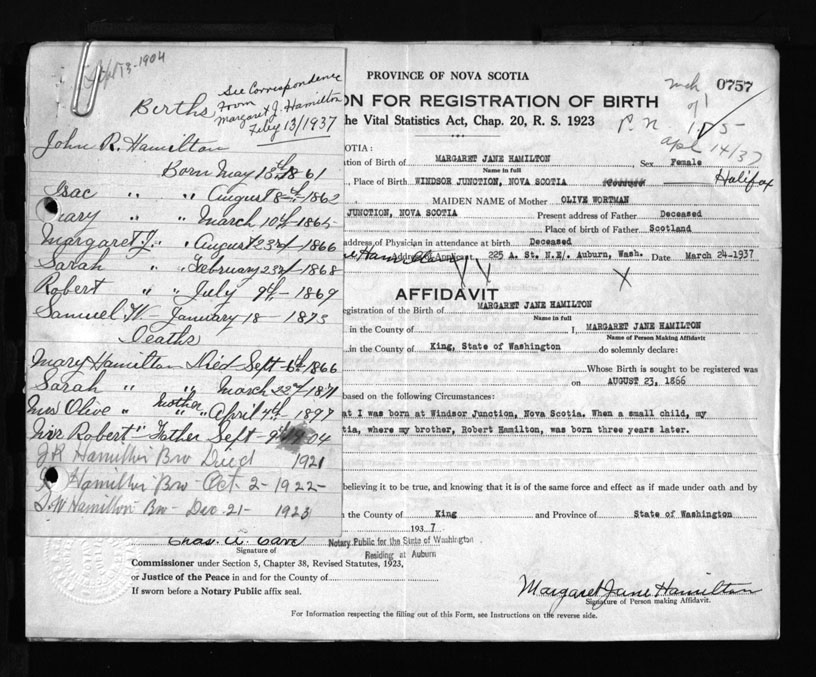 Sept 13-1904
See Correspondence
From
Margaret J. Hamilton
Filey 13/1937
Births
John R. Hamilton
Born May 13th 1861
Isac " " August 8th - 1862
Mary " " March 10th - 1865
Margaret J. " " August 23rd - 1866
Sarah " " February 23rd - 1868
Robert " " July 9th - 1869
Samuel W - January 18 - 1873
Deaths
Mary Hamilton Died Sept - 6th - 1866
Sarah " " March 22nd - 1871
Mrs Olive " Mother " April 4th - 1897
Robert " Father Sept - 9th 1904
J R Hamilton Bro Died 1921
Hamilton Bro - Oct - 2 - 1922 -
S. W Hamilton Bro - Dec - 21 - 1923
PROVINCE OF NOVA SCOTIA
0757
ON FOR REGISTRATION OF BIRTH
the Vital Statistics Act, Chap. 20, R. S. 1923
P. N
Apl 14/37
OTIA:
ation of Birth of MARGARET JANE HAMILTON Sex Female
Name in full
Place of Birth WINDSOR JUNCTION, NOVA SCOTIA Halifax
MAIDEN NAME of Mother OLIVE WORTMAN
JUNCTION, NOVA SCOTIA Present address of Father Deceased
Place of birth of Father Scotland
address of Physician in attendance at birth Deceased
Address of Applicant 225 A. St. N.E/. Auburn, Wash. Date March 24-1937
AFFIDAVIT
egistration of the Birth of MARGARET JANE HAMILTON
Name in full
I, MARGARET JANE HAMILTON
in the County of
Name of Person Making Affidavit
in the County of King, State of Washington do solemnly declare:
Whose Birth is sought to be registered was
on AUGUST 23, 1866
based on the following Circumstances:
at I was born at Windsor Junction, Nova Scotia. When a small child, my
tia, where my brother, Robert Hamilton, was born three years later.
believing it to be true, and knowing that it is of the same force and effect as if made under oath and by
the County of King and Province of State of Washington
193 7
Chas. A. Cave Notary Public for the State of Washington
Signature of Residing at Auburn
Commissioner under Section 5, Chapter 38, Revised Statutes, 1923,
or Justice of the Peace in and for the County of
If sworn before a Notary Public affix seal.
Margaret Jane Hamilton
Signature of Person making Affidavit.
For Information respecting the filling out of this Form, see Instructions on the reverse side.